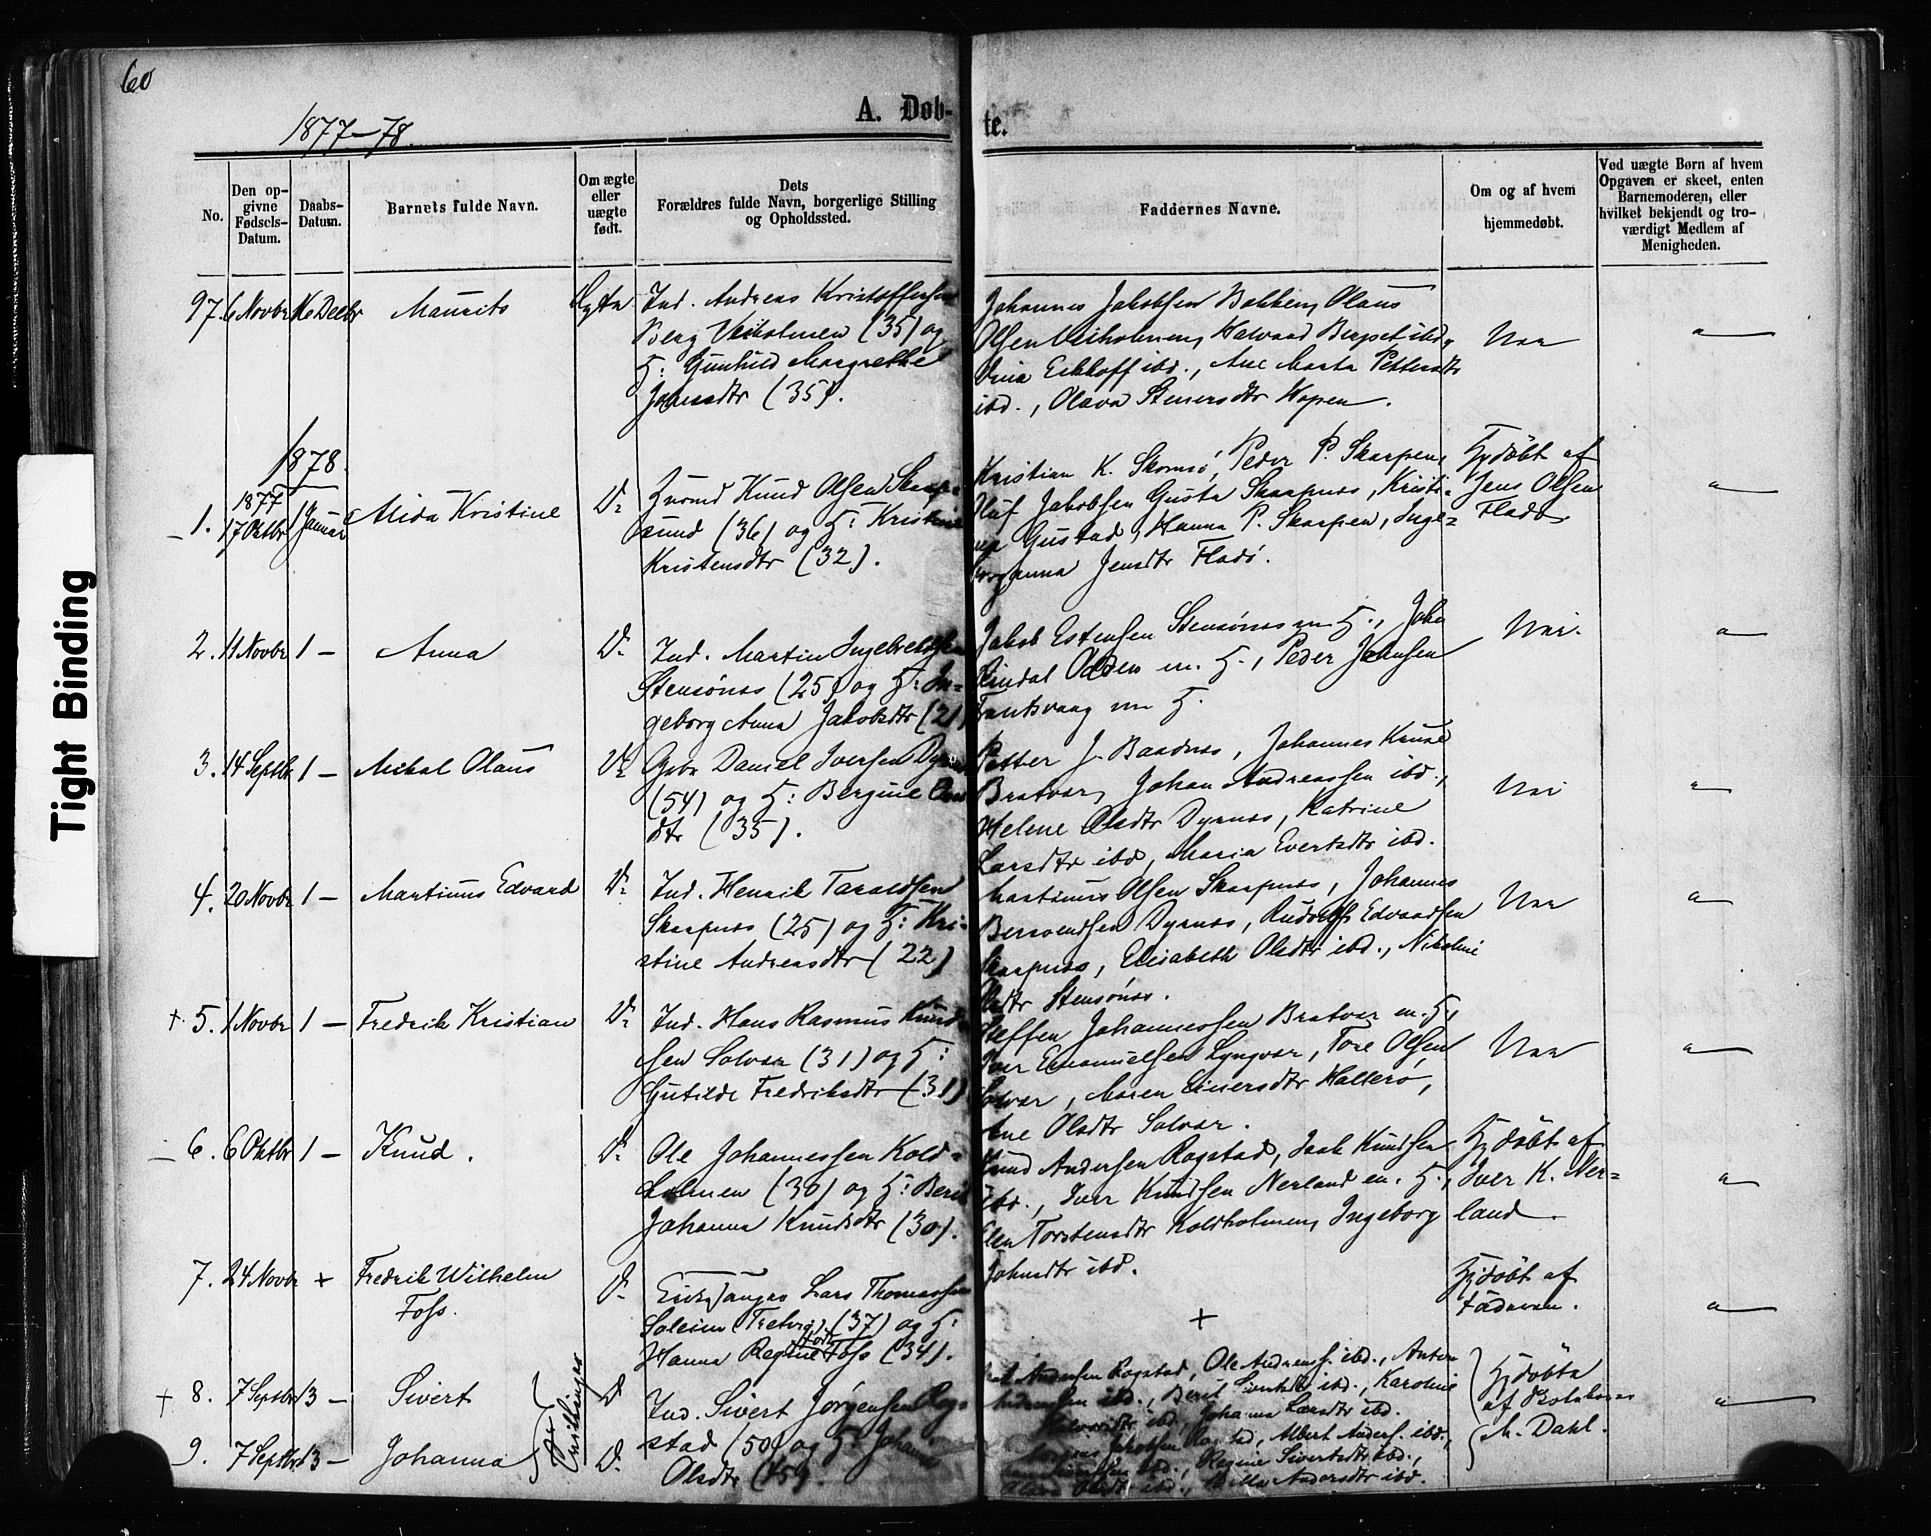 60
1877-78.
A. Døb-
te.
No.
Den op-
givne
Fødsels-
Datum.
Daabs-
Datum.
Barnets fulde Navn.
Om ægte
eller
uægte
født.
Dets
Forældres fulde Navn, borgerlige Stilling
og Opholdssted.
Faddernes Navne.
Om og af hvem
hjemmedøbt.
Ved uægte Børn af hvem
Opgaven er skeet, enten
Barnemoderen, eller
hvilket bekjendt og tro-
værdigt Medlem af
Menigheden.
97. 6 Novbr 16 Decbr Maurits Ægte
Ind. Andreas Kristoffersen
Berg Veiholmen (35) og
H: Gunhild Margrethe
Jonsdtr (35).
Johannes Jakobsen Bakken, Olaus
Olsen Veiholmen, Halvard Bergset ibd.,
Eckhoff ibd., Ane Marta Pettersdtr
ibd., Olava Steversdtr Hopen.
Nei
1878.
1877
1. 17 Oktbr 1 Januar Alida Kristine D:
Knud Olsen Skarp-
sund (36) og H: Kristine
Kristensdtr (32).
Kristian K. Skomsø, Peder P. Skarpen,
Oluf Jakobsen Skarpnes, Kristi-
Gustad, Hanna P. Skarpen, Inge-
borganna Jensdtr Fladø.
Hjdøbt af
Jens Olsen
Fladø.
2. 11 Novbr 1 - Anna D:
Ind. Martin Ingebrigtsen
Stensønes (25) og H: In-
geborg Anna Jakobsdtr (21)
Jakob Estensen Stensønes m H., John
Rindal Odden m. H., Peder Johnsen
m H.
Nei.
3. 14 Septbr 1 - Mikal Olaus D:
Gbr Daniel Iversen Dyrnes
(54) og H: Bergine
dtr (35).
Petter J. Baadnes, Johannes Knudsen
Bratvær, Johan Andreassen ibd.,
Helene Olsdtr Dyrnes, Katrine
Larsdtr ibd, Maria Evertsdtr ibd.
Nei
4. 20 Novbr 1 - Martinus Edvard D:
Ind. Henrik Taraldsen
Skarpnes (25) og H: Kri-
stine Andreasdtr (22)
Martinus Olsen Skarpnes, Johannes
Berendsen Dyrnes, Rudolf Edvardsen
Skarpnes, Elisabeth Olsdtr ibd., Nikoline
Olsdtr Stensønes.
Nei
+ 5. 1 Novbr 1 - Fredrik Kristian D:
Ind. Hans Rasmus Knud-
sen Solvær (31) og H:
Gutilde Fredriksdtr (31)
Steffen Johannessen Bratvær m. H,
Iver Emanuelsen Lyngvær, Tore Olsen
Solvær, Maren Einersdtr Halterø,
Ane Olsdtr Solvær.
Nei
6. 6 Oktbr 1 - Knud. D:
Ole Johannessen Kold-
holmen (30) og H: Berit
Johanna Knudsdtr (30).
Knud Andersen Rogstad, Isak Knudsen
ibd., Iver Knudsen Nerland m. H.,
Elen Torstensdtr Koldholmen, Ingeborg
Johnsdtr ibd.
Hjdøbt af
Iver K. Ner-
land.
7. 24 Novbr + Fredrik Wilhelm
Foss. D:
Kirkesanger Lars Thomassen
Soleim (37) og H:
Hanna Regine født Foss (34).
+
Hjdøbt af
Faderen.
+ 8. 7 Septbr 13 - Sivert D
Tvillinger
Ind. Sivert Jørgensen Rog-
stad (50) og H: Johanna
Olsdtr (45).
Andersen Rogstad, Ole Andreass. ibd., Anton
Andersen ibd., Berit Sivertsdtr ibd., Karoline
Halvorsdtr ibd., Johanna Larsdtr ibd.
Hjdøbte
af
M. Dahl.
9. 7 Septbr 13 - Johanna D:
Jakobsen Rogstad, Albert Anders. ibd.,
ibd., Regine Sivertsdtr ibd.,
Olsdtr ibd., Andersdtr ibd.
Tight Binding